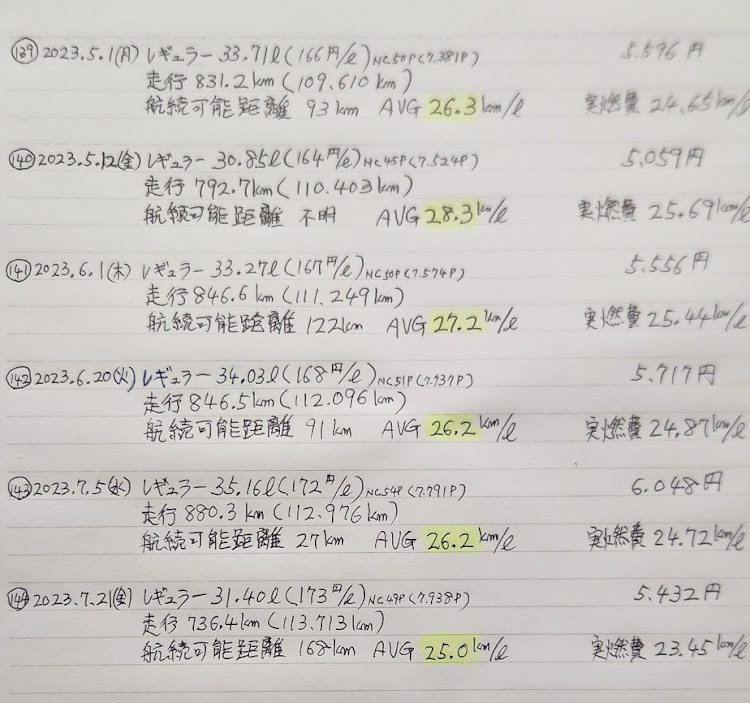 139 2023.5.1(月) レギュラー 33.71ℓ(166円/ℓ)NC50P(7.381P) 5.596円
走行 831.2km(109.610km)
航続可能距離 93km AVG 26.3km/ℓ 実燃費 24.65km/ℓ
140 2023.5.12(金) レギュラー 30.85ℓ(164円/ℓ)NC45P(7.524P) 5.059円
走行 792.7km(110.403km)
航続可能距離 不明 AVG 28.3km/ℓ 実燃費 25.69km/ℓ
141 2023.6.1(木) レギュラー 33.27ℓ(167円/ℓ)NC50P(7.574P) 5.556円
走行 846.6km(111.249km)
航続可能距離 122km AVG 27.2km/ℓ 実燃費 25.44km/ℓ
142 2023.6.20(火) レギュラー 34.03ℓ(168円/ℓ)NC51P(7.737P) 5.717円
走行 846.5km(112.096km)
航続可能距離 91km AVG 26.2km/ℓ 実燃費 24.87km/ℓ
143 2023.7.5(水) レギュラー 35.16ℓ(172円/ℓ)NC54P(7.791P) 6.048円
走行 880.3km(112.976km)
航続可能距離 27km AVG 26.2km/ℓ 実燃費 24.72km/ℓ
144 2023.7.21(金) レギュラー 31.40ℓ(173円/ℓ)NC49P(7.938P) 5.432円
走行 736.4km(113.713km)
航続可能距離 168km AVG 25.0km/ℓ 実燃費 23.45km/ℓ